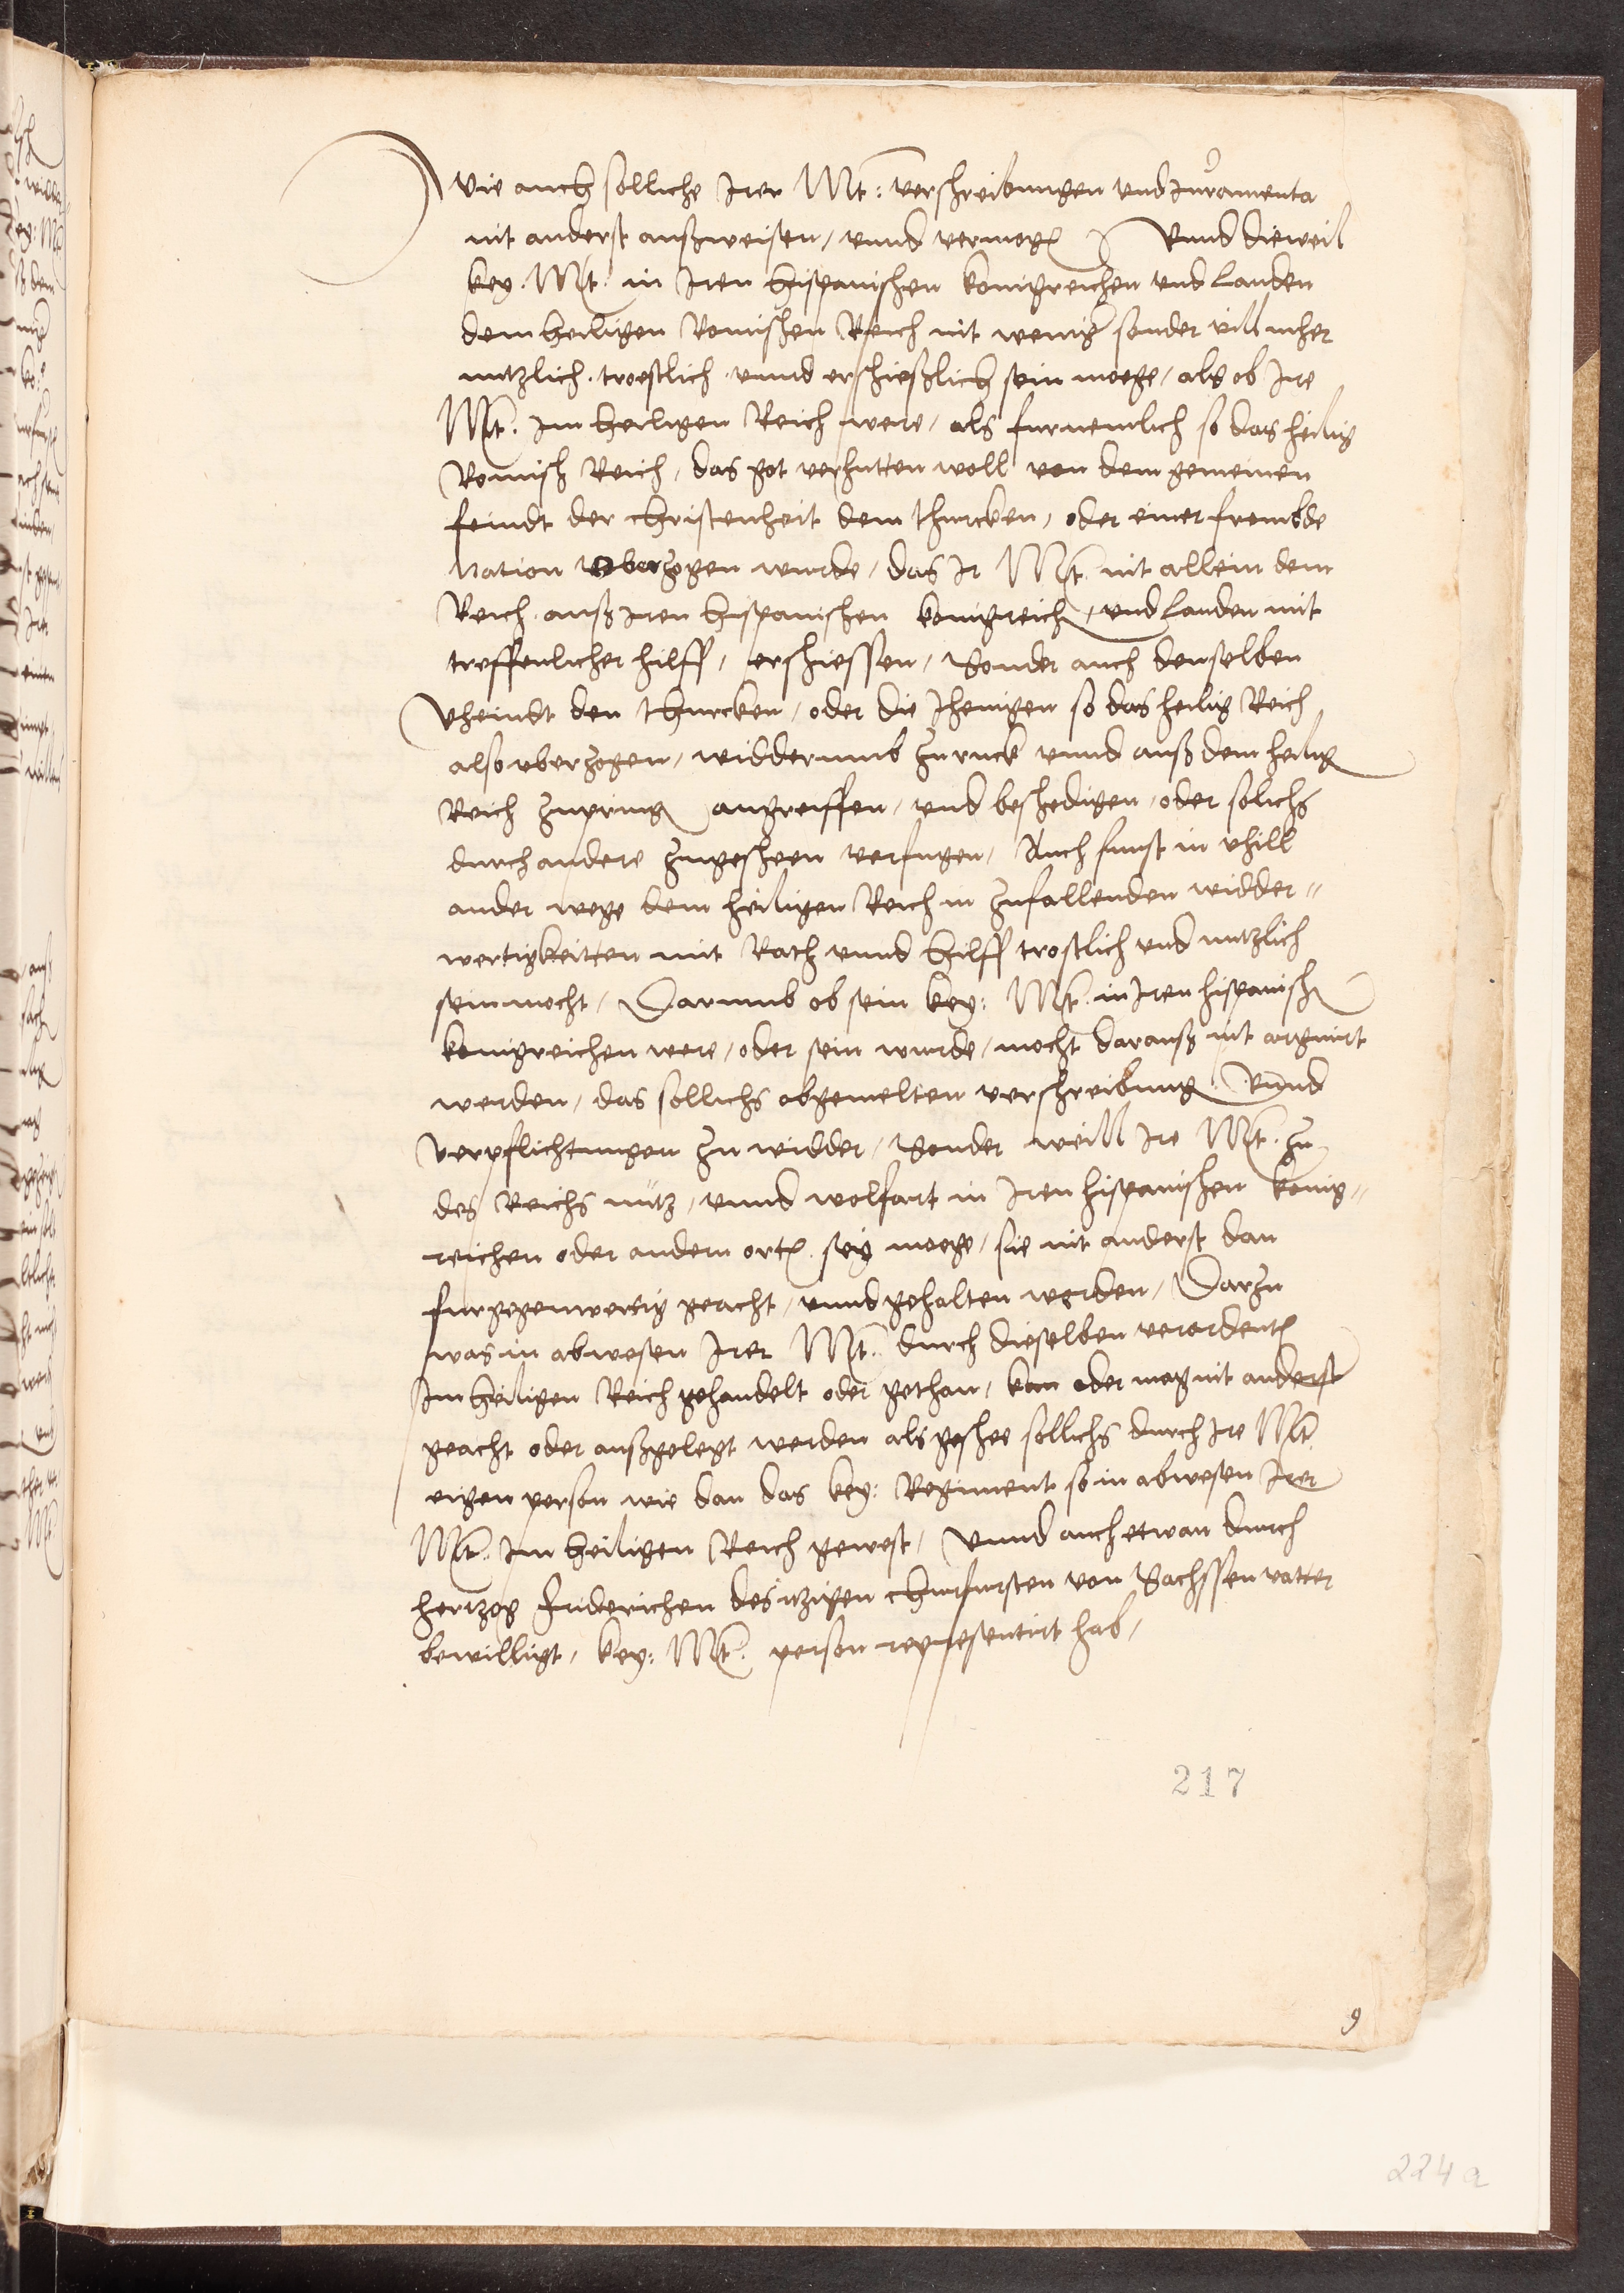 Wie auch solliche Irer Mt: verschreibungen und Juramenta
nit anderst außweisen, unnd vermogen Unnd dieweil
key. Mt. in Iren hispanischen konigreichen und landen
dem heiligen Romischen Reich nit weniger sonder vill meher
nutzlich. troestlich. unnd erschießlich sein moege, als ob Ire
Mt. im heiligen Reich were, als furnemlich so das heilig
Romisch Reich, das got verhutten woll von dem gemeinen
feindt der christenheit dem thurcken, oder einer frembde
Nation uberzogen wurde, das Ir Mt. nit allein dem
Reich auß Iren hispanischen konigreichen, und landen mit
treffenlicher hilff, erschiessen, Sonder auch denselben
Vheindt den thurcken, oder die Jhenigen so das heilig Reich
also uberzogen, widderumb zuruck unnd auß dem heiligen
Reich zupringen angreiffen, und beschedigen, oder solichs
durch andere zugescheen verfugen, Auch sunst in vhill
ander wege dem heiligen Reich in zufallenden widder=
wertigkeitten mit Rath unnd hilff trostlich und nutzlich
sein mocht, Darumb ob sein key: Mt. in Iren hispanischen
konigreichen were, oder sein wurde, mocht darauß nit arguirt
werden, das sollichs obgemelten verschreibungen unnd
verpflichtungen zu widder, Sonder weill Ire Mt. zu
des Reichs nutz, unnd wolfart in Iren hispanischen konig=
reichen oder andern orten sey moege, sie nit anderst dan
fur gegenwertig geacht, unnd gehalten werden, Darzu
was in abwesen Irer Mt. durch dieselben verordenten
Im heiligen Reich gehandelt oder gethan, kan oder mag nit anderst
geacht oder außgelegt werden als geschee sollichs durch Ire Mt.
eigen person wie dan das key: Regiment so in abwesen Irer
Mt. im heiligen Reich gewest, Unnd auch etwan durch
hertzog friderichen des itzigen churfursten von Sachssen vatter
bewilligt, key: Mt. person representirt hab,
217
9
224a